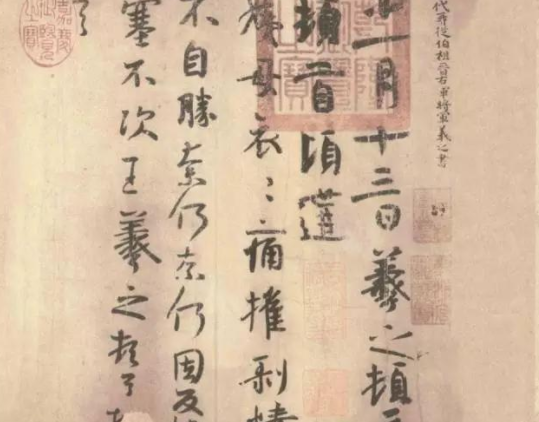 代再從伯祖晉右軍將軍羲之書
十一月十三日羲之頓
頓首頃遘
姨母哀〻痛摧剝情
不自勝奈何奈何因反
塞不次王羲之頓首